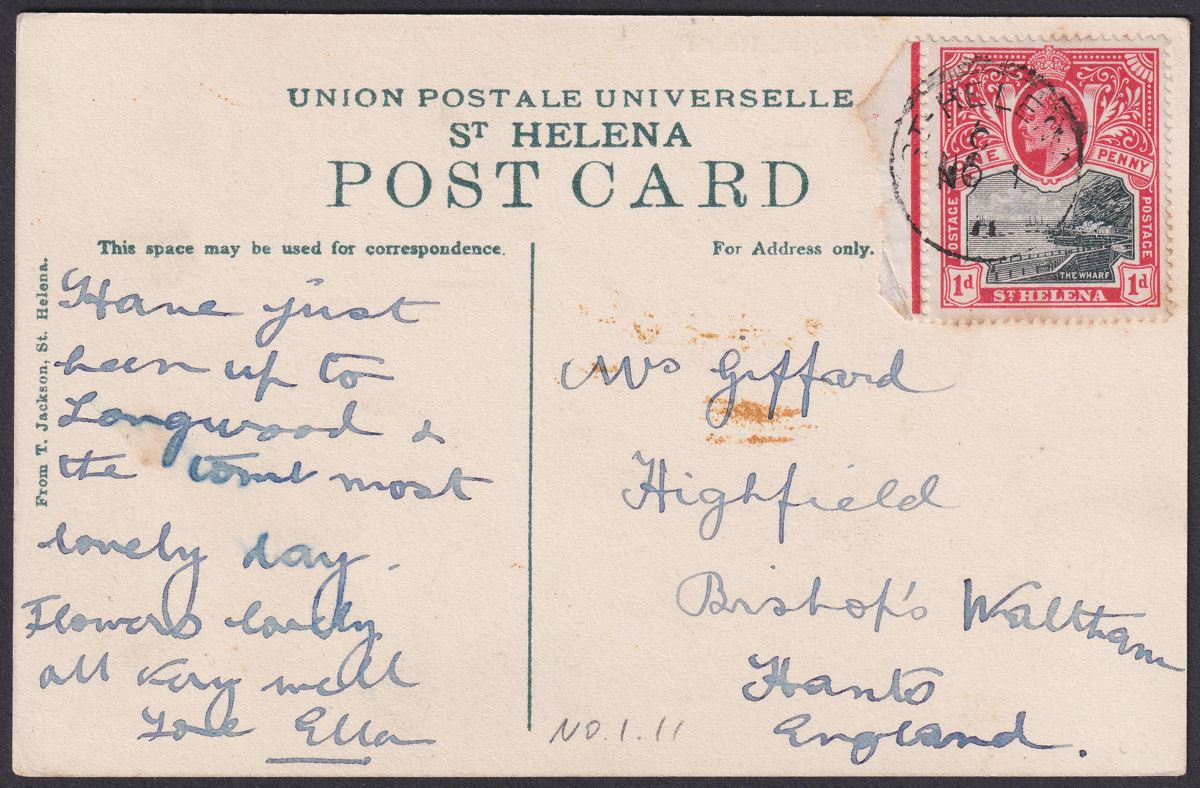 UNION POSTALE UNIVERSELLE
ST HELENA
POST CARD
This space may be used for correspondence.
For Address only.
From T. Jackson, St. Helena.
Have just
been up to
Longwood &
the tomb most
lovely day.
Flowers lovely
all very well
Love Ella
Mrs Giffard
Highfield
Bishop's Waltham
Hants
England.
NO.1.11
ST. HELENA
C
NO 1
11
ONE PENNY
POSTAGE
POSTAGE
THE WHARF
1d ST HELENA 1d